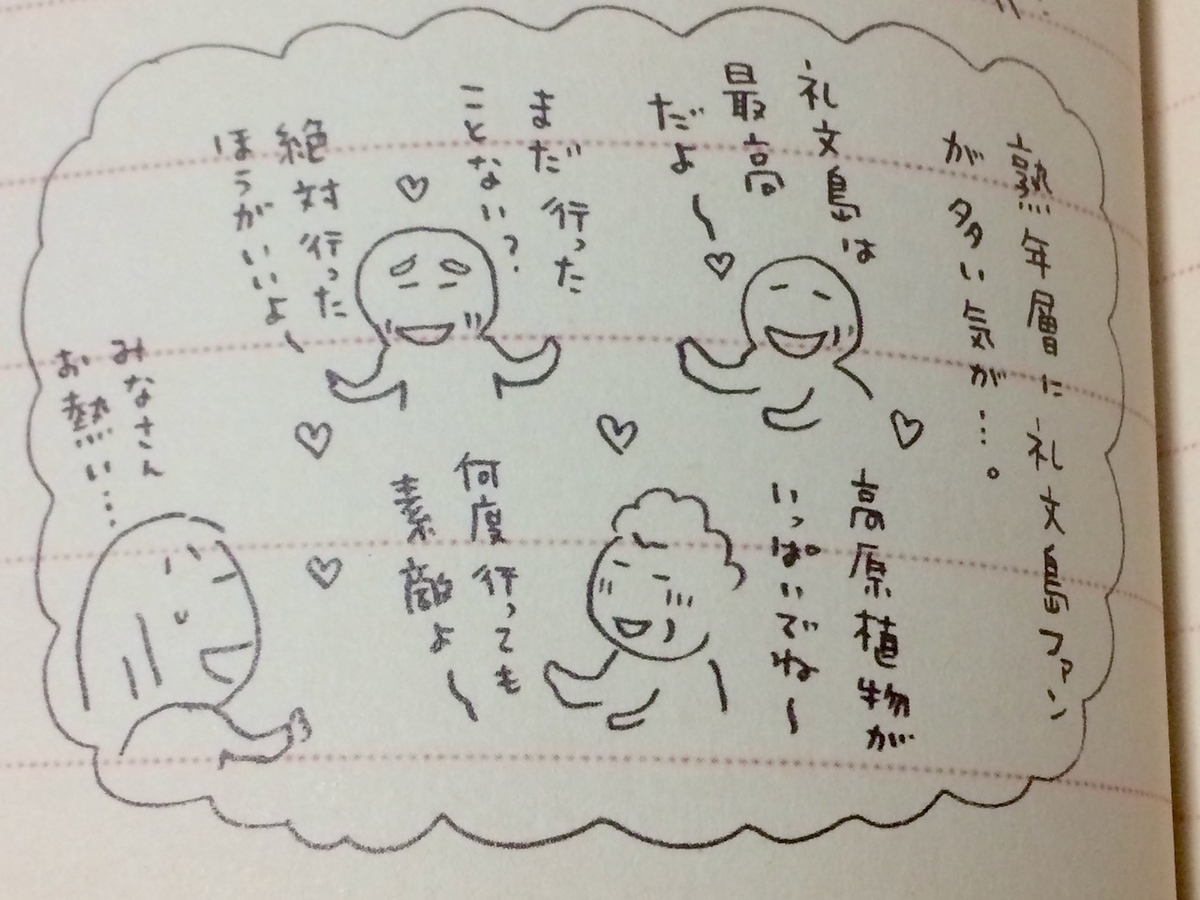 熟年層に礼文島ファン
が多い気が…。
礼文島は
最高
だよ〜♡
まだ行った
ことない?
絶対行った
ほうがいいよ〜
高原植物が
いっぱいでね〜
何度行っても
素敵よ〜
みなさん
お熱い…